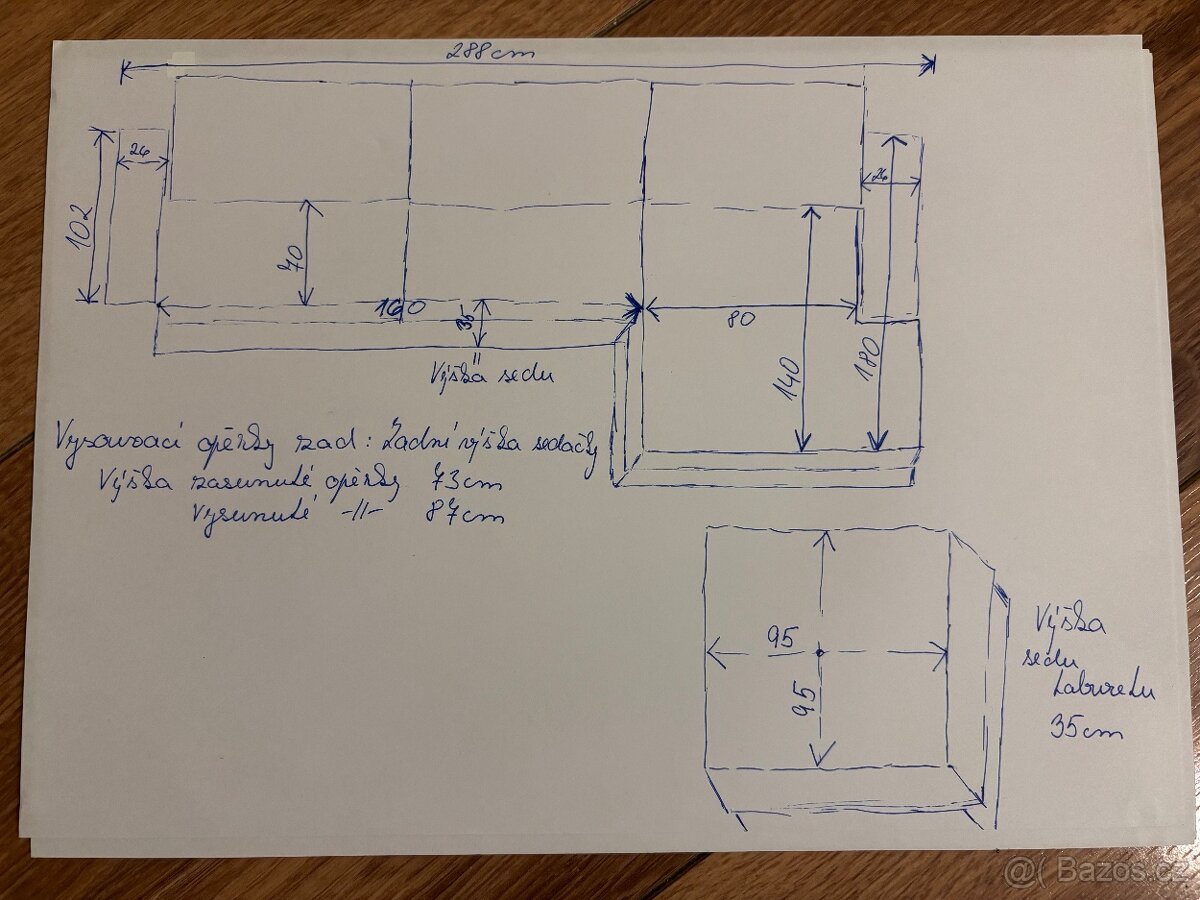 288cm
26
26
102
70
160
35
80
140
180
Výška sedu
Vysouvací opěrky zad: Zadní výška sedačky
Výška zasunuté opěrky 73cm
Vysunuté -11- 87cm
95
95
Výška
sedu
taburetu
35cm
@( Bazoš.cz